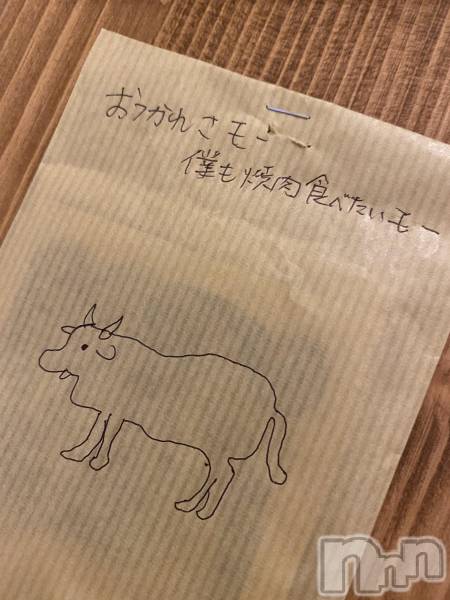 おつかれさモー
僕も焼肉食べたいモー
nnn